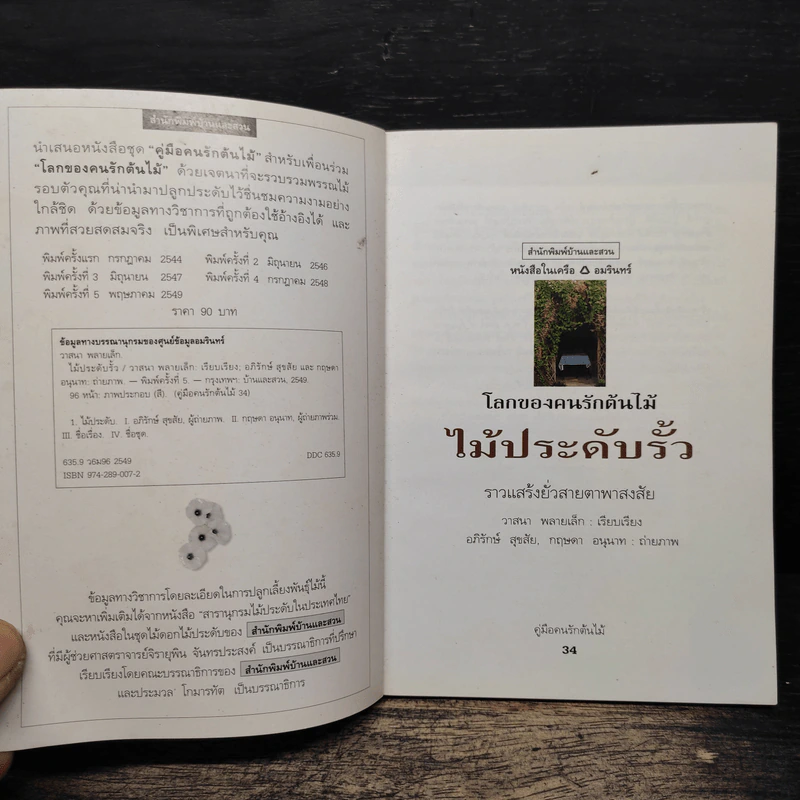 สำนักพิมพ์บ้านและสวน
นำเสนอหนังสือชุด “คู่มือคนรักต้นไม้” สำหรับเพื่อนร่วม
“โลกของคนรักต้นไม้” ด้วยเจตนาที่จะรวบรวมพรรณไม้
รอบตัวคุณที่น่านำมาปลูกประดับไว้ชื่นชมความงามอย่าง
ใกล้ชิด ด้วยข้อมูลทางวิชาการที่ถูกต้องใช้อ้างอิงได้ และ
ภาพที่สวยสดสมจริง เป็นพิเศษสำหรับคุณ
พิมพ์ครั้งแรก กรกฎาคม 2544 พิมพ์ครั้งที่ 2 มิถุนายน 2546
พิมพ์ครั้งที่ 3 มิถุนายน 2547 พิมพ์ครั้งที่ 4 กรกฎาคม 2548
พิมพ์ครั้งที่ 5 พฤษภาคม 2549
ราคา 90 บาท
ข้อมูลทางบรรณานุกรมของศูนย์ข้อมูลอมรินทร์
วาสนา พลายเล็ก.
ไม้ประดับรั้ว / วาสนา พลายเล็ก: เรียบเรียง; อภิรักษ์ สุขสัย และ กฤษดา
อนุนาท: ถ่ายภาพ. — พิมพ์ครั้งที่ 5. — กรุงเทพฯ: บ้านและสวน, 2549.
96 หน้า: ภาพประกอบ (สี). (คู่มือคนรักต้นไม้ 34)
1. ไม้ประดับ. I. อภิรักษ์ สุขสัย, ผู้ถ่ายภาพ. II. กฤษดา อนุนาท, ผู้ถ่ายภาพร่วม.
III. ชื่อเรื่อง. IV. ชื่อชุด.
635.9 ว6ม96 2549 DDC 635.9
ISBN 974-289-007-2
ข้อมูลทางวิชาการโดยละเอียดในการปลูกเลี้ยงพันธุ์ไม้นี้
คุณจะหาเพิ่มเติมได้จากหนังสือ “สารานุกรมไม้ประดับในประเทศไทย”
และหนังสือในชุดไม้ดอกไม้ประดับของ สำนักพิมพ์บ้านและสวน
ที่มีผู้ช่วยศาสตราจารย์จิรายุพิน จันทรประสงค์ เป็นบรรณาธิการที่ปรึกษา
เรียบเรียงโดยคณะบรรณาธิการของ สำนักพิมพ์บ้านและสวน
และประมวล โกมารทัต เป็นบรรณาธิการ
สำนักพิมพ์บ้านและสวน
หนังสือในเครือ อมรินทร์
โลกของคนรักต้นไม้
ไม้ประดับรั้ว
ราวแสร้งยั่วสายตาพาสงสัย
วาสนา พลายเล็ก : เรียบเรียง
อภิรักษ์ สุขสัย, กฤษดา อนุนาท : ถ่ายภาพ
คู่มือคนรักต้นไม้
34